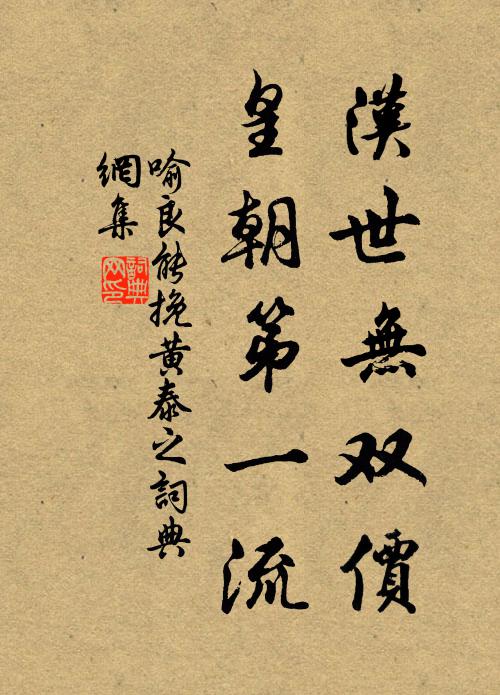 漢世無双價
皇朝第一流
喻良能挽黄泰之詞典
網集
詞典
网印